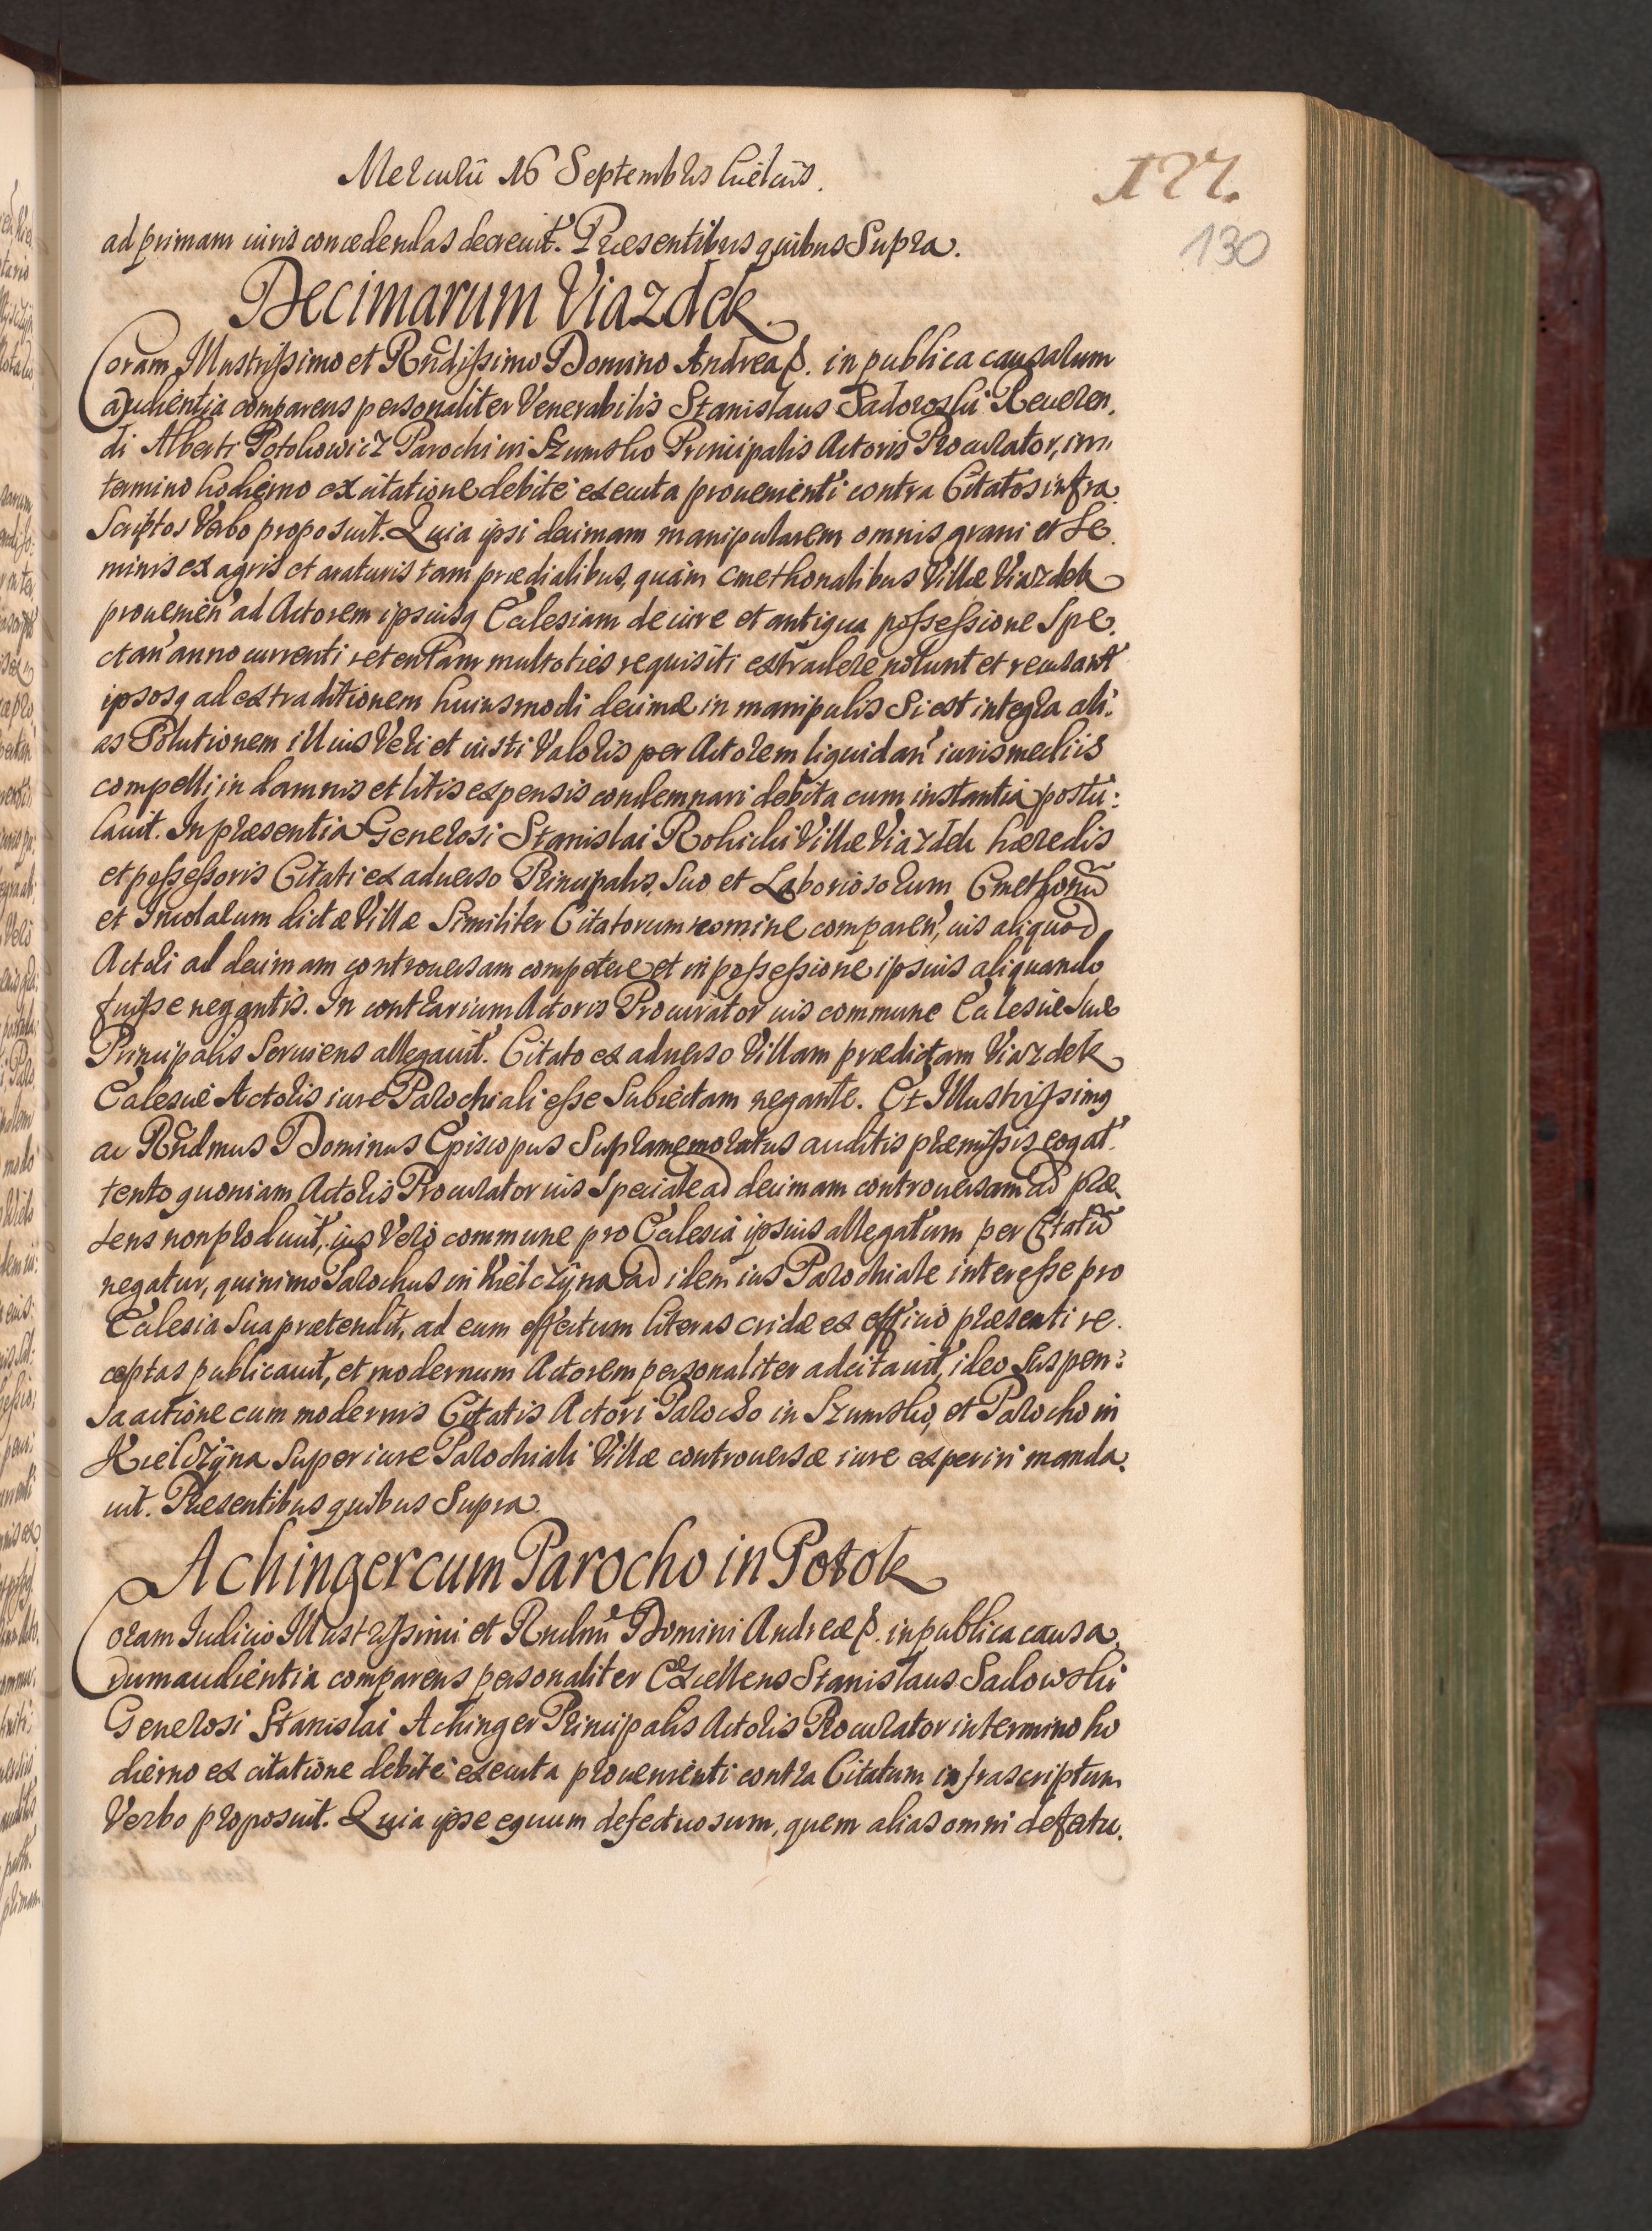 Mercurii 16 Septembris Kielciis.
127.
130
ad primam iuris concedendas decreuit. Præsentibus quibus Supra.
Decimarum Viazdek
Coram Illustrissimo et Rndissimo Domino Andrea p. in publica causarum
audientia comparens personaliter Venerabilis Stanislaus Sadorosky Reueren,
di Alberti Potokowicz Parochi in Szumsko Principalis Actoris Procurator, in
termino hodierno ex citatione debite executa prouenienti contra Citatos infra
Scriptos Verbo proposuit. Quia ipsi decimam manipularem omnis grani et Se.
minis ex agris et araturis tam prædialibus, quàm cmethonalibus Villæ Viazdek
prouenien̄ ad Actorem ipsiusq Ecclesiam de iure et antiqua possessione Spe.
ctan̄ anno currenti retentam multoties requisiti extradere nolunt et recusant
ipsosq ad extraditionem huiusmodi decimæ in manipulis Si est integra ali:
as Solutionem illius Veri et iusti Valoris per Actorem liquidan̄ iuris mediis
compelli in damnis et litis expensis condemnari debita cum instantia postu:
lauit. In præsentia Generosi Stanislai Rokicki Villæ Viazdek hæredis
et possessoris Citati ex aduerso Principalis, Suo et Laboriosorum Cmethonū
et Incolarum dictæ Villæ Similiter Citatorum nomine comparen̄, ius aliquod
Actori ad decimam controuersam competere et in possessione ipsius aliquando
fuisse negantis. In contrarium Actoris Procurator ius commune Ecclesiæ Suæ
Principalis Seruiens allegauit. Citato ex aduerso Villam prædictam Viazdek
Ecclesiæ Actoris iure Parochiali esse Subiectam negante. Et Illustrissimg
ac Rndmus Dominus Episcopus Supramemoratus auditis præmissis eoq at
tento quoniam Actoris Procurator ius Speciale ad decimam controuersam ad præ
sens non produxit, ius Vero commune pro Ecclesia ipsius allegatum per Citatū
negatur, quinimo Parochus in Kielczyna ad idem ius Parochiale interesse pro
Ecclesia Sua prætendit, ad eum effectum literas cridæ ex officio præsenti re.
ceptas publicauit, et modernum Actorem personaliter adcitauit, ideo Suspen:
sa actione cum modernis Citatis Actori Parocho in Szumsko, et Parocho in
Kielczyna Super iure Parochiali Villæ controuersæ iure experiri manda.
uit. Præsentibus quibus Supra.
Achinger cum Parocho in Potok
Coram Iudicio Illustrissimi et Rndmi Domini Andreæ p. in publica causa,
rum audientia comparens personaliter Excellens Stanislaus Sadowski
Generosi Stanislai Achinger Principalis Actoris Procurator in termino ho
dierno ex citatione debite executa prouenienti contra Citatum infrascriptum
Verbo proposuit. Quia ipse equum defectuosum, quem alias omni defectu.